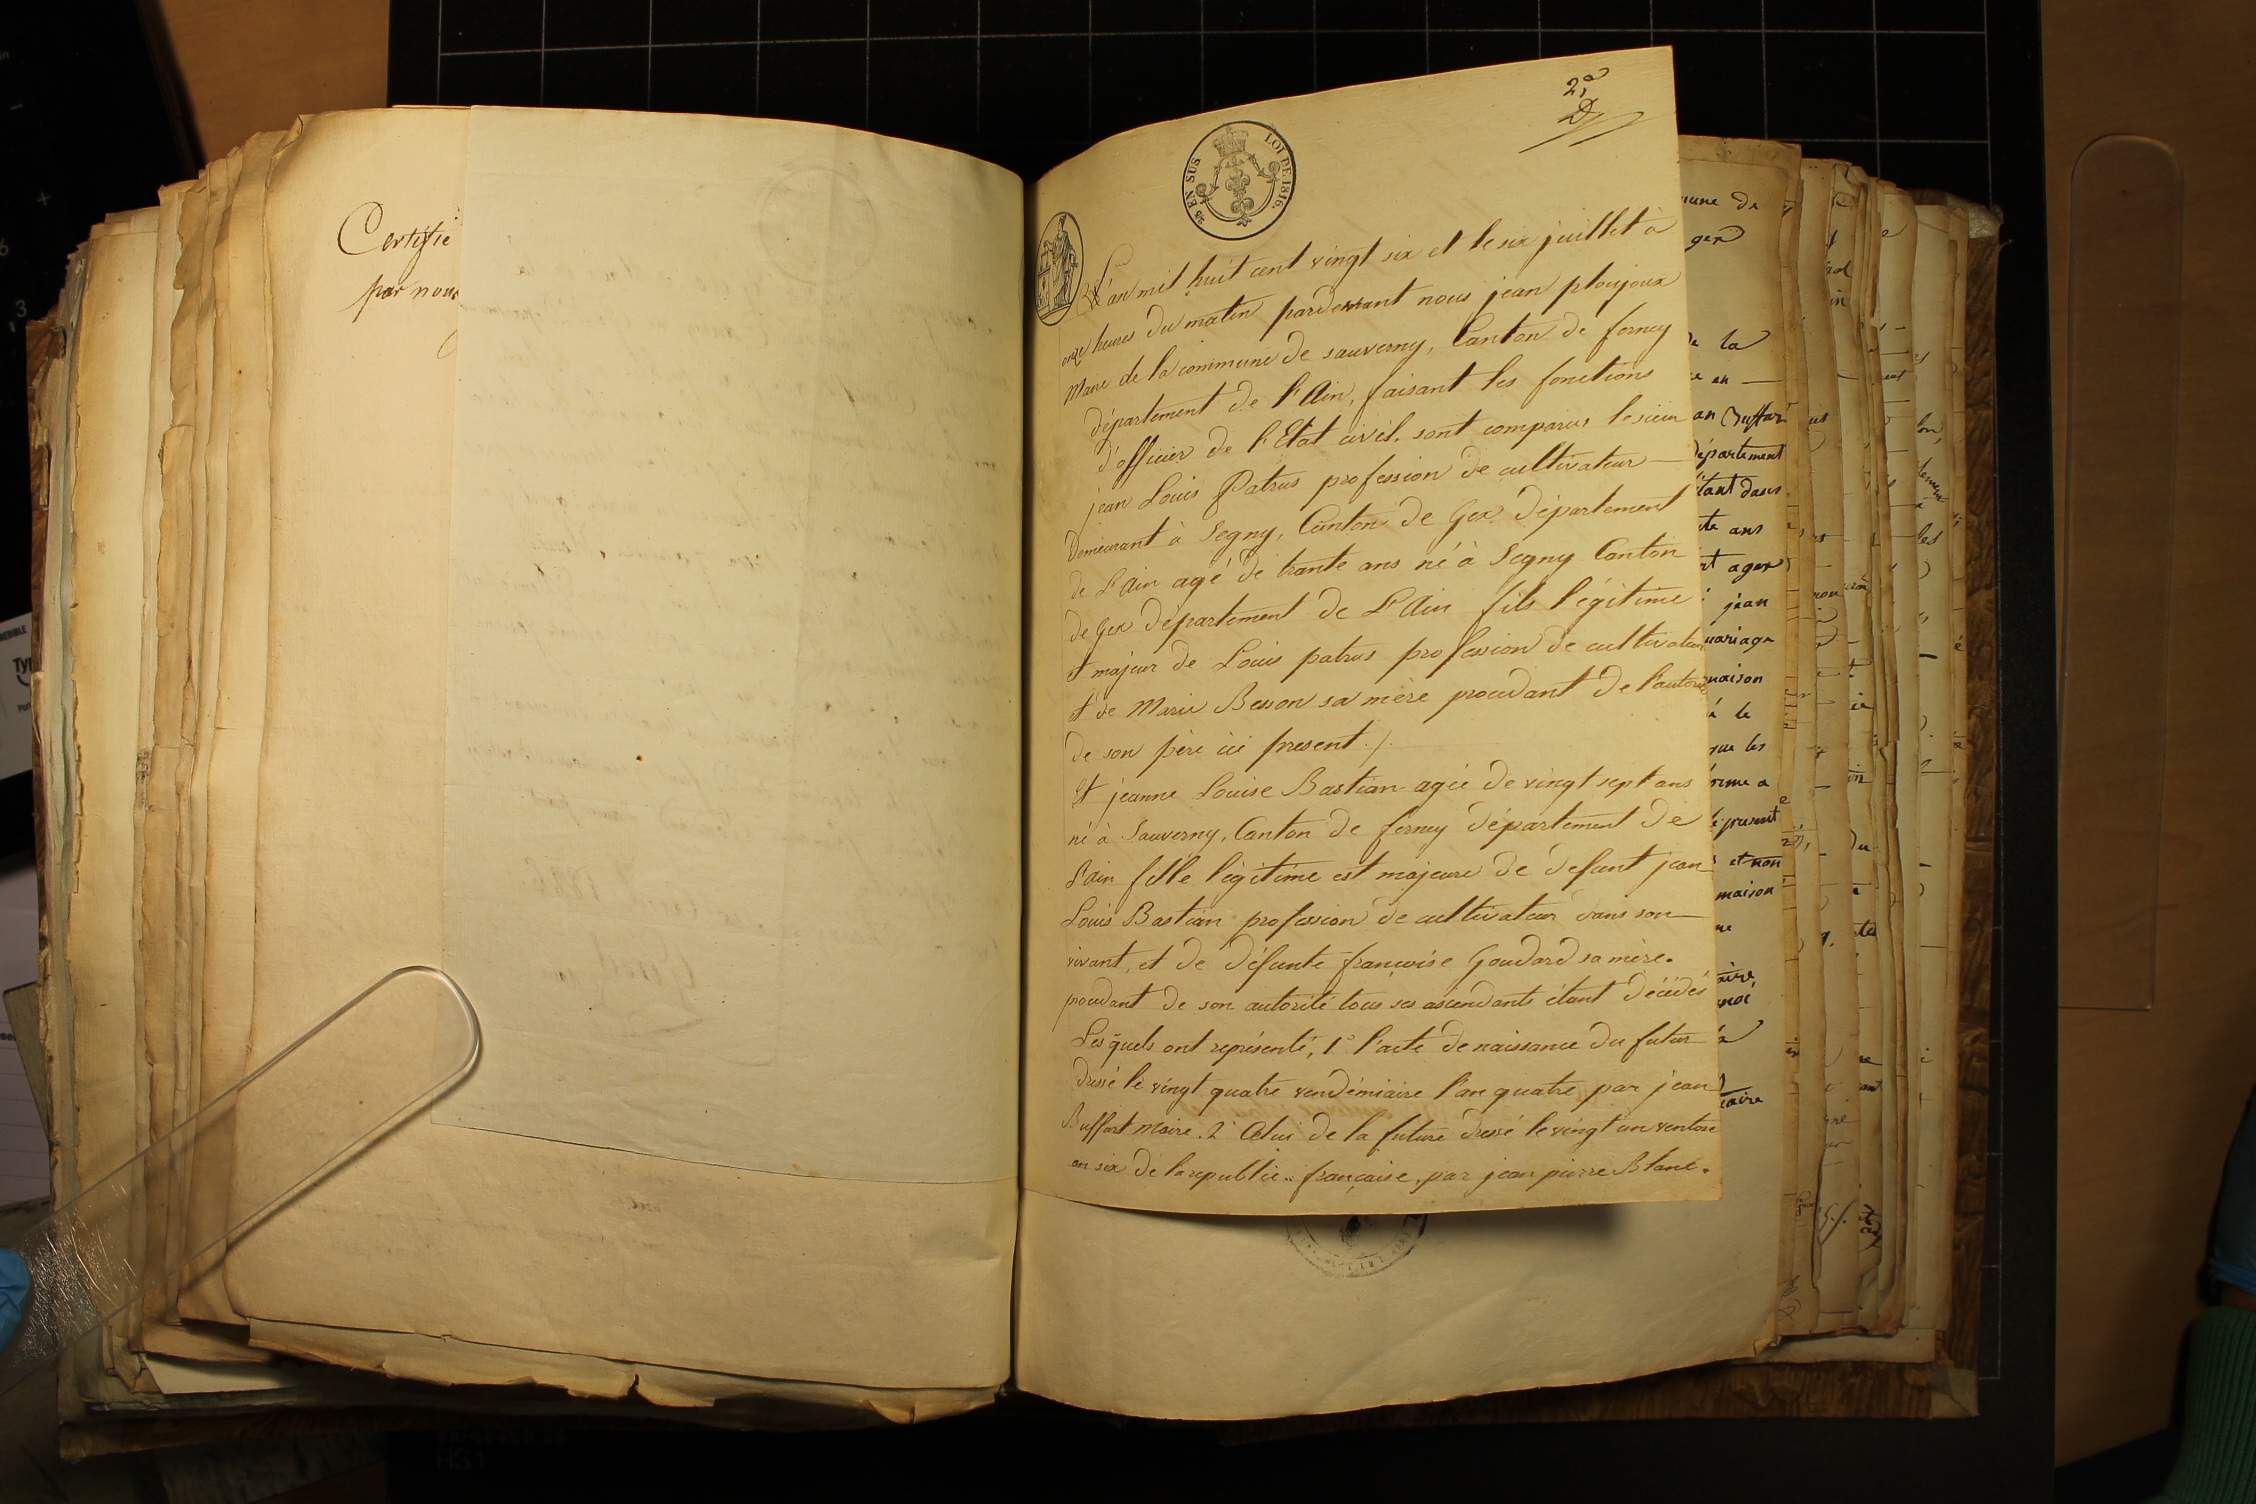 Certifie
par nous
2e
EN SUS
LOI DE 1816.
L'an mil huit cent vingt six et le six juillet à
onze heures du matin pardevant nous jean ploujoux
Maire de la commune de sauverny, Canton de ferney
département de l'Ain, faisant les fonctions
d'officier de l'Etat civil. sont comparus le sieur
jean Louis Patrus profession de cultivateur —
demeurant à Segny, Canton de Gex département
de L'Ain agé de trante ans né à Segny Canton
de Gex département de L'Ain fils légitime
et majeur de Louis patrus profession de cultivateur
et de Marie Besson sa mère procédant de l'autorité
de son père ici present ./.
Et jeanne Louise Bastian agée de vingt sept ans
né à Sauverny, Canton de ferney département de
L'ain fille légitime est majeure de defunt jean
Louis Bastian profession de cultivateur dans son —
vivant, et de défunte françoise Goudard sa mère.
procédant de son autorité tous ses ascendants étant décédés
Lesquels ont représenté, 1° l'acte de naissance du futur
dressé le vingt quatre vendémiaire l'an quatre par jean
Buffart maire. 2° Celui de la future dressé le vingt un ventose
an six de la republic.. française, par jean pierre Blanc.
mune de
gex
de la
an Buffar
département
ans
jean
mariage
maison
le
que les
present
et non
maison
aire